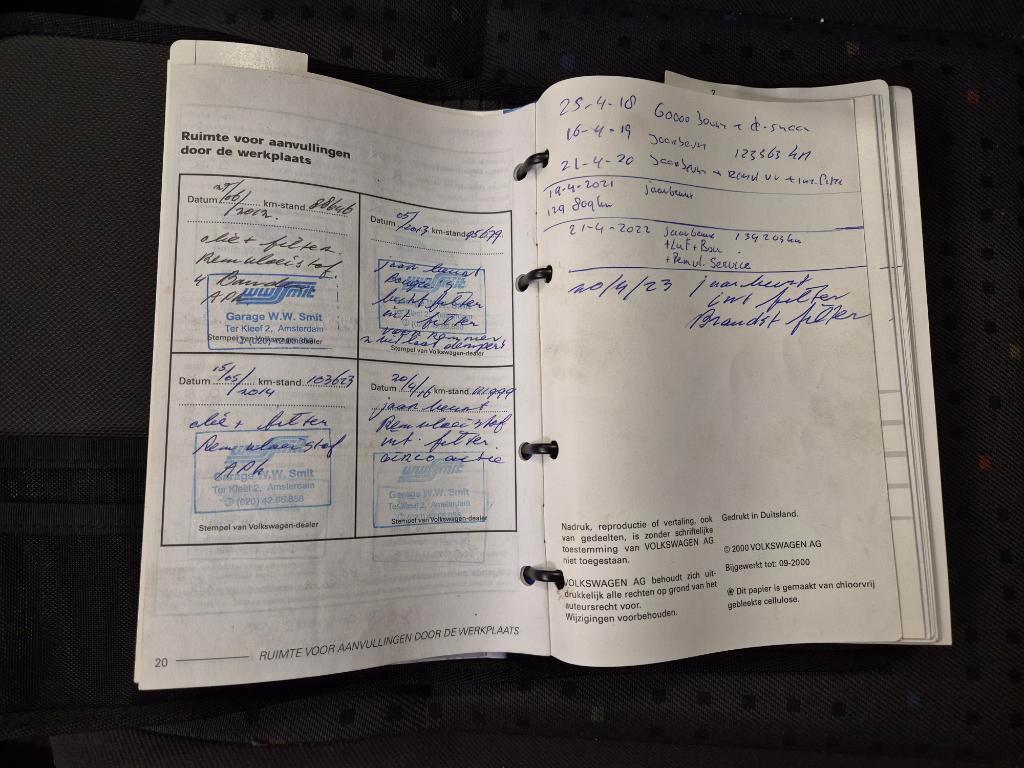 Ruimte voor aanvullingen
door de werkplaats
Datum 25/06/2012. km-stand 88646
olie + filter
Remvloeistof
4 Banden
APK
WW Smit
Garage W.W. Smit
Ter Kleef 2, Amsterdam
Stempel van Volkswagen-dealer
Datum 05/2013 km-stand 95679
jaar beurt
Bougie's
lucht filter
int filter
voor remmen
Stempel van Volkswagen-dealer
Datum 15/05/2014 km-stand 103623
olie + filter
Remvloeistof
APK
WW Smit
Garage W.W. Smit
Ter Kleef 2, Amsterdam
(020) 42.68.858
Stempel van Volkswagen-dealer
Datum 20/4/16 km-stand 111999
jaar beurt
Remvloeistof
int filter.
actie
WW Smit
Garage W.W. Smit
Ter Kleef 2, Amsterdam
Stempel van Volkswagen-dealer
20
RUIMTE VOOR AANVULLINGEN DOOR DE WERKPLAATS
25-4-18 60000 beurt + d-snaar
16-4-19 Jaarbeurt 123563 km
21-4-20 Jaarbeurt + Remvl vv + int. filter
19-4-2021 jaarbeurt
129 809 km
21-4-2022 jaarbeurt 134203 km
+ Luf + Bou
+ Remvl. Service
20/4/23 jaar beurt
int filter
Brandst filter
Nadruk, reproductie of vertaling, ook
van gedeelten, is zonder schriftelijke
toestemming van VOLKSWAGEN AG
niet toegestaan.
VOLKSWAGEN AG behoudt zich uit-
drukkelijk alle rechten op grond van het
auteursrecht voor.
Wijzigingen voorbehouden.
Gedrukt in Duitsland.
© 2000 VOLKSWAGEN AG
Bijgewerkt tot: 09-2000
Dit papier is gemaakt van chloorvrij
gebleekte cellulose.